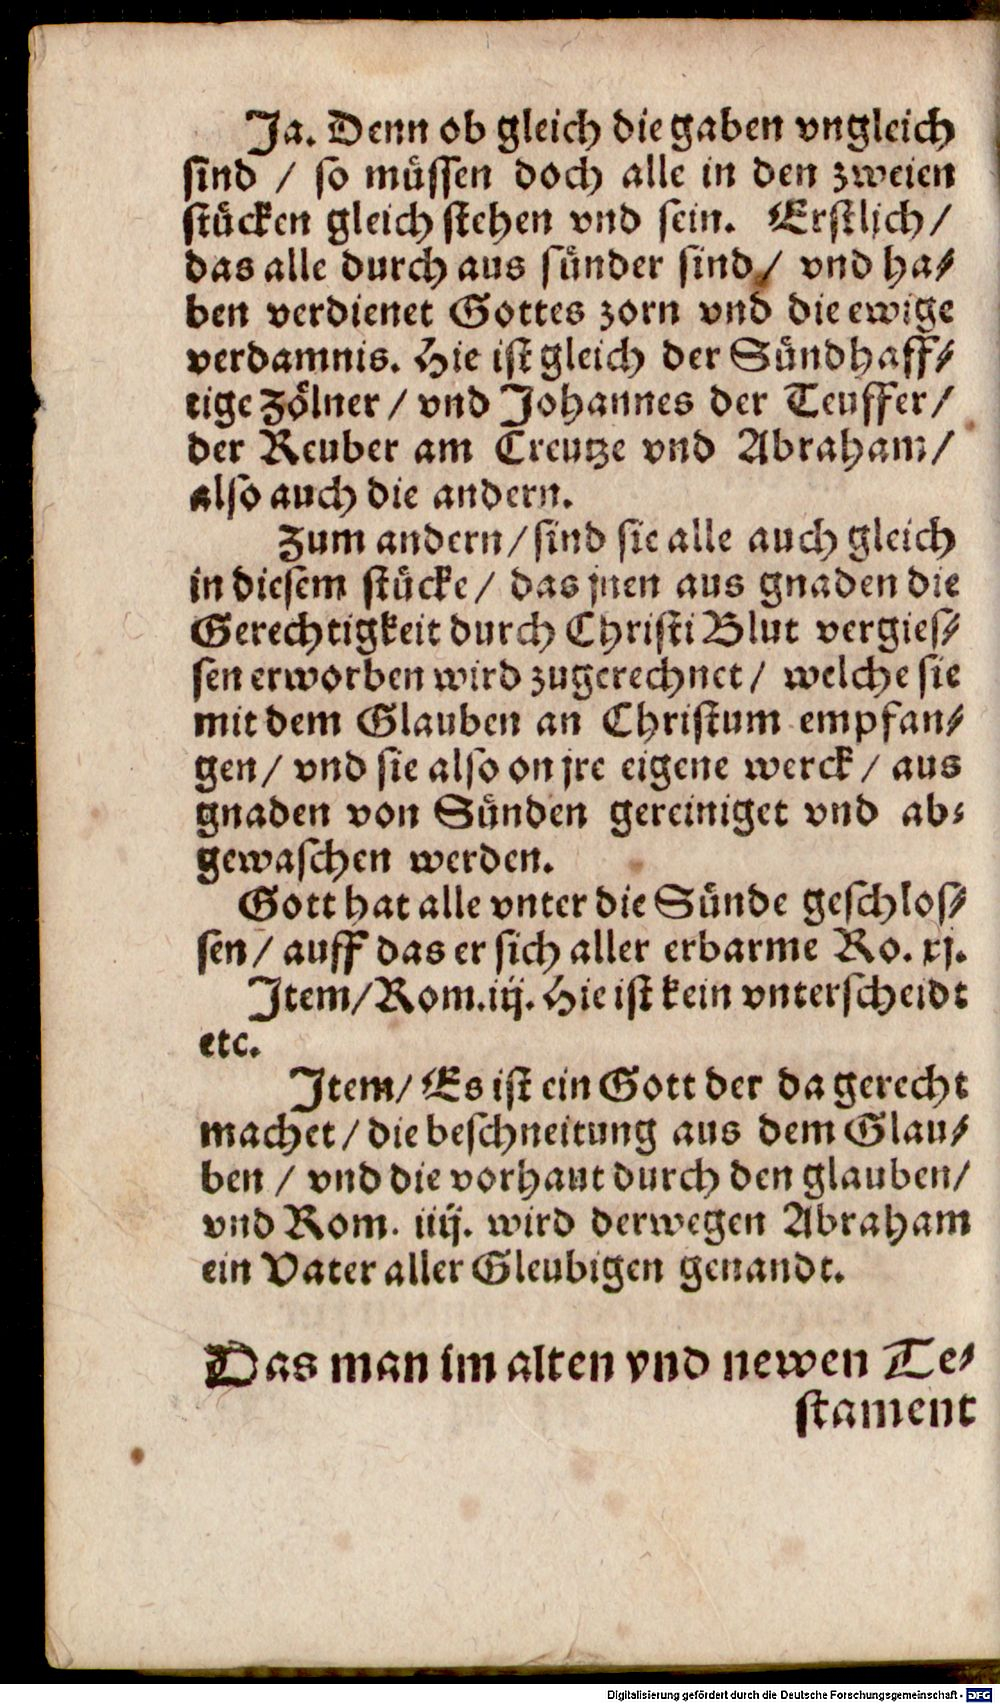 Ja. Denn ob gleich die gaben vngleich
sind / so müssen doch alle in den zweien
stücken gleich stehen vnd sein. Erstlich /
das alle durch aus sünder sind / vnd ha-
ben verdienet Gottes zorn vnd die ewige
verdamnis. Hie ist gleich der Sündhaff-
tige Zölner / vnd Johannes der Teuffer /
der Reuber am Creutze vnd Abraham /
also auch die andern.
Zum andern / sind sie alle auch gleich
in diesem stücke / das jnen aus gnaden die
Gerechtigkeit durch Christi Blut vergies-
sen erworben wird zugerechnet / welche sie
mit dem Glauben an Christum empfan-
gen / vnd sie also on jre eigene werck / aus
gnaden von Sünden gereiniget vnd ab-
gewaschen werden.
Gott hat alle vnter die Sünde geschlos-
sen / auff das er sich aller erbarme Ro. xj.
Item / Rom. iij. Hie ist kein vnterscheidt
etc.
Item / Es ist ein Gott der da gerecht
machet / die beschneitung aus dem Glau-
ben / vnd die vorhaut durch den glauben /
vnd Rom. iiij. wird derwegen Abraham
ein Vater aller Gleubigen genandt.
Das man im alten vnd newen Te-
stament
Digitalisierung gefördert durch die Deutsche Forschungsgemeinschaft - DFG